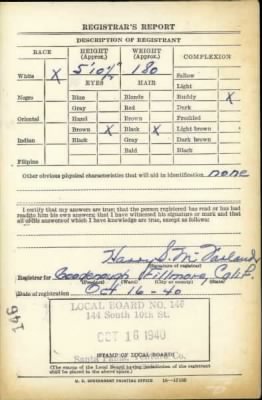 REGISTRAR'S REPORT
DESCRIPTION OF REGISTRANT
RACE HEIGHT (Approx.) WEIGHT (Approx.) COMPLEXION
White X 5' 10½" 180 Sallow
EYES HAIR Light
Negro Blue Blonde Ruddy X
Gray Red Dark
Oriental Hazel Brown Freckled
Brown X Black X Light brown
Indian Black Gray Dark brown
Bald Black
Filipino
Other obvious physical characteristics that will aid in identification none
I certify that my answers are true; that the person registered has read or has had
read to him his own answers; that I have witnessed his signature or mark and that
all of his answers of which I have knowledge are true, except as follows:
Harry S. McFarland
(Signature of registrar)
Registrar for Fillmore, Calif.
(Precinct) (Ward) (City or county) (State)
Date of registration Oct 16-40
LOCAL BOARD NO. 146
144 South 10th St.
OCT 16 1940
STAMP OF LOCAL BOARD
Santa Paula, Ventura Co.
(The stamp of the Local Board having jurisdiction of the registrant
shall be placed in the above space.)
146
U. S. GOVERNMENT PRINTING OFFICE 16—17105